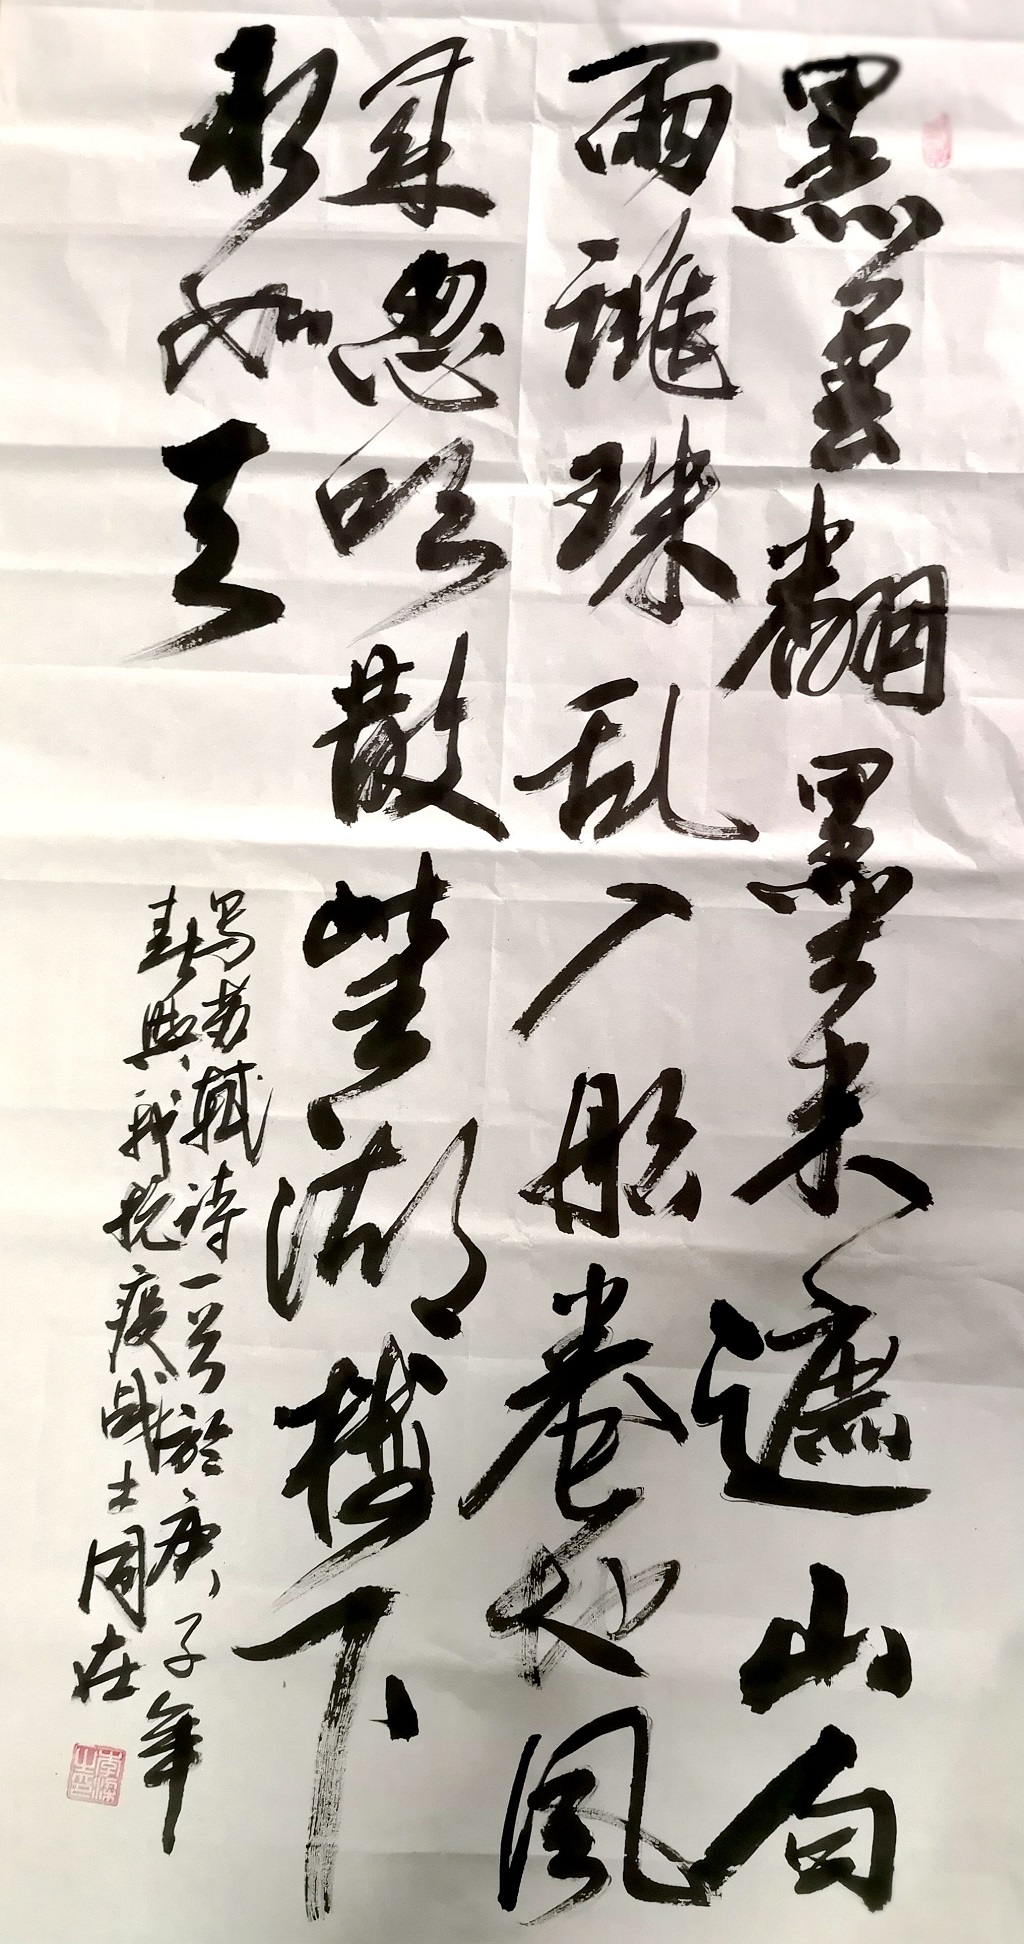 黑雲翻墨未遮山白
雨跳珠乱入船卷地風
来忽吹散望湖楼下
水如天
写苏軾诗一首於庚子年
春與我抗疫战士同在